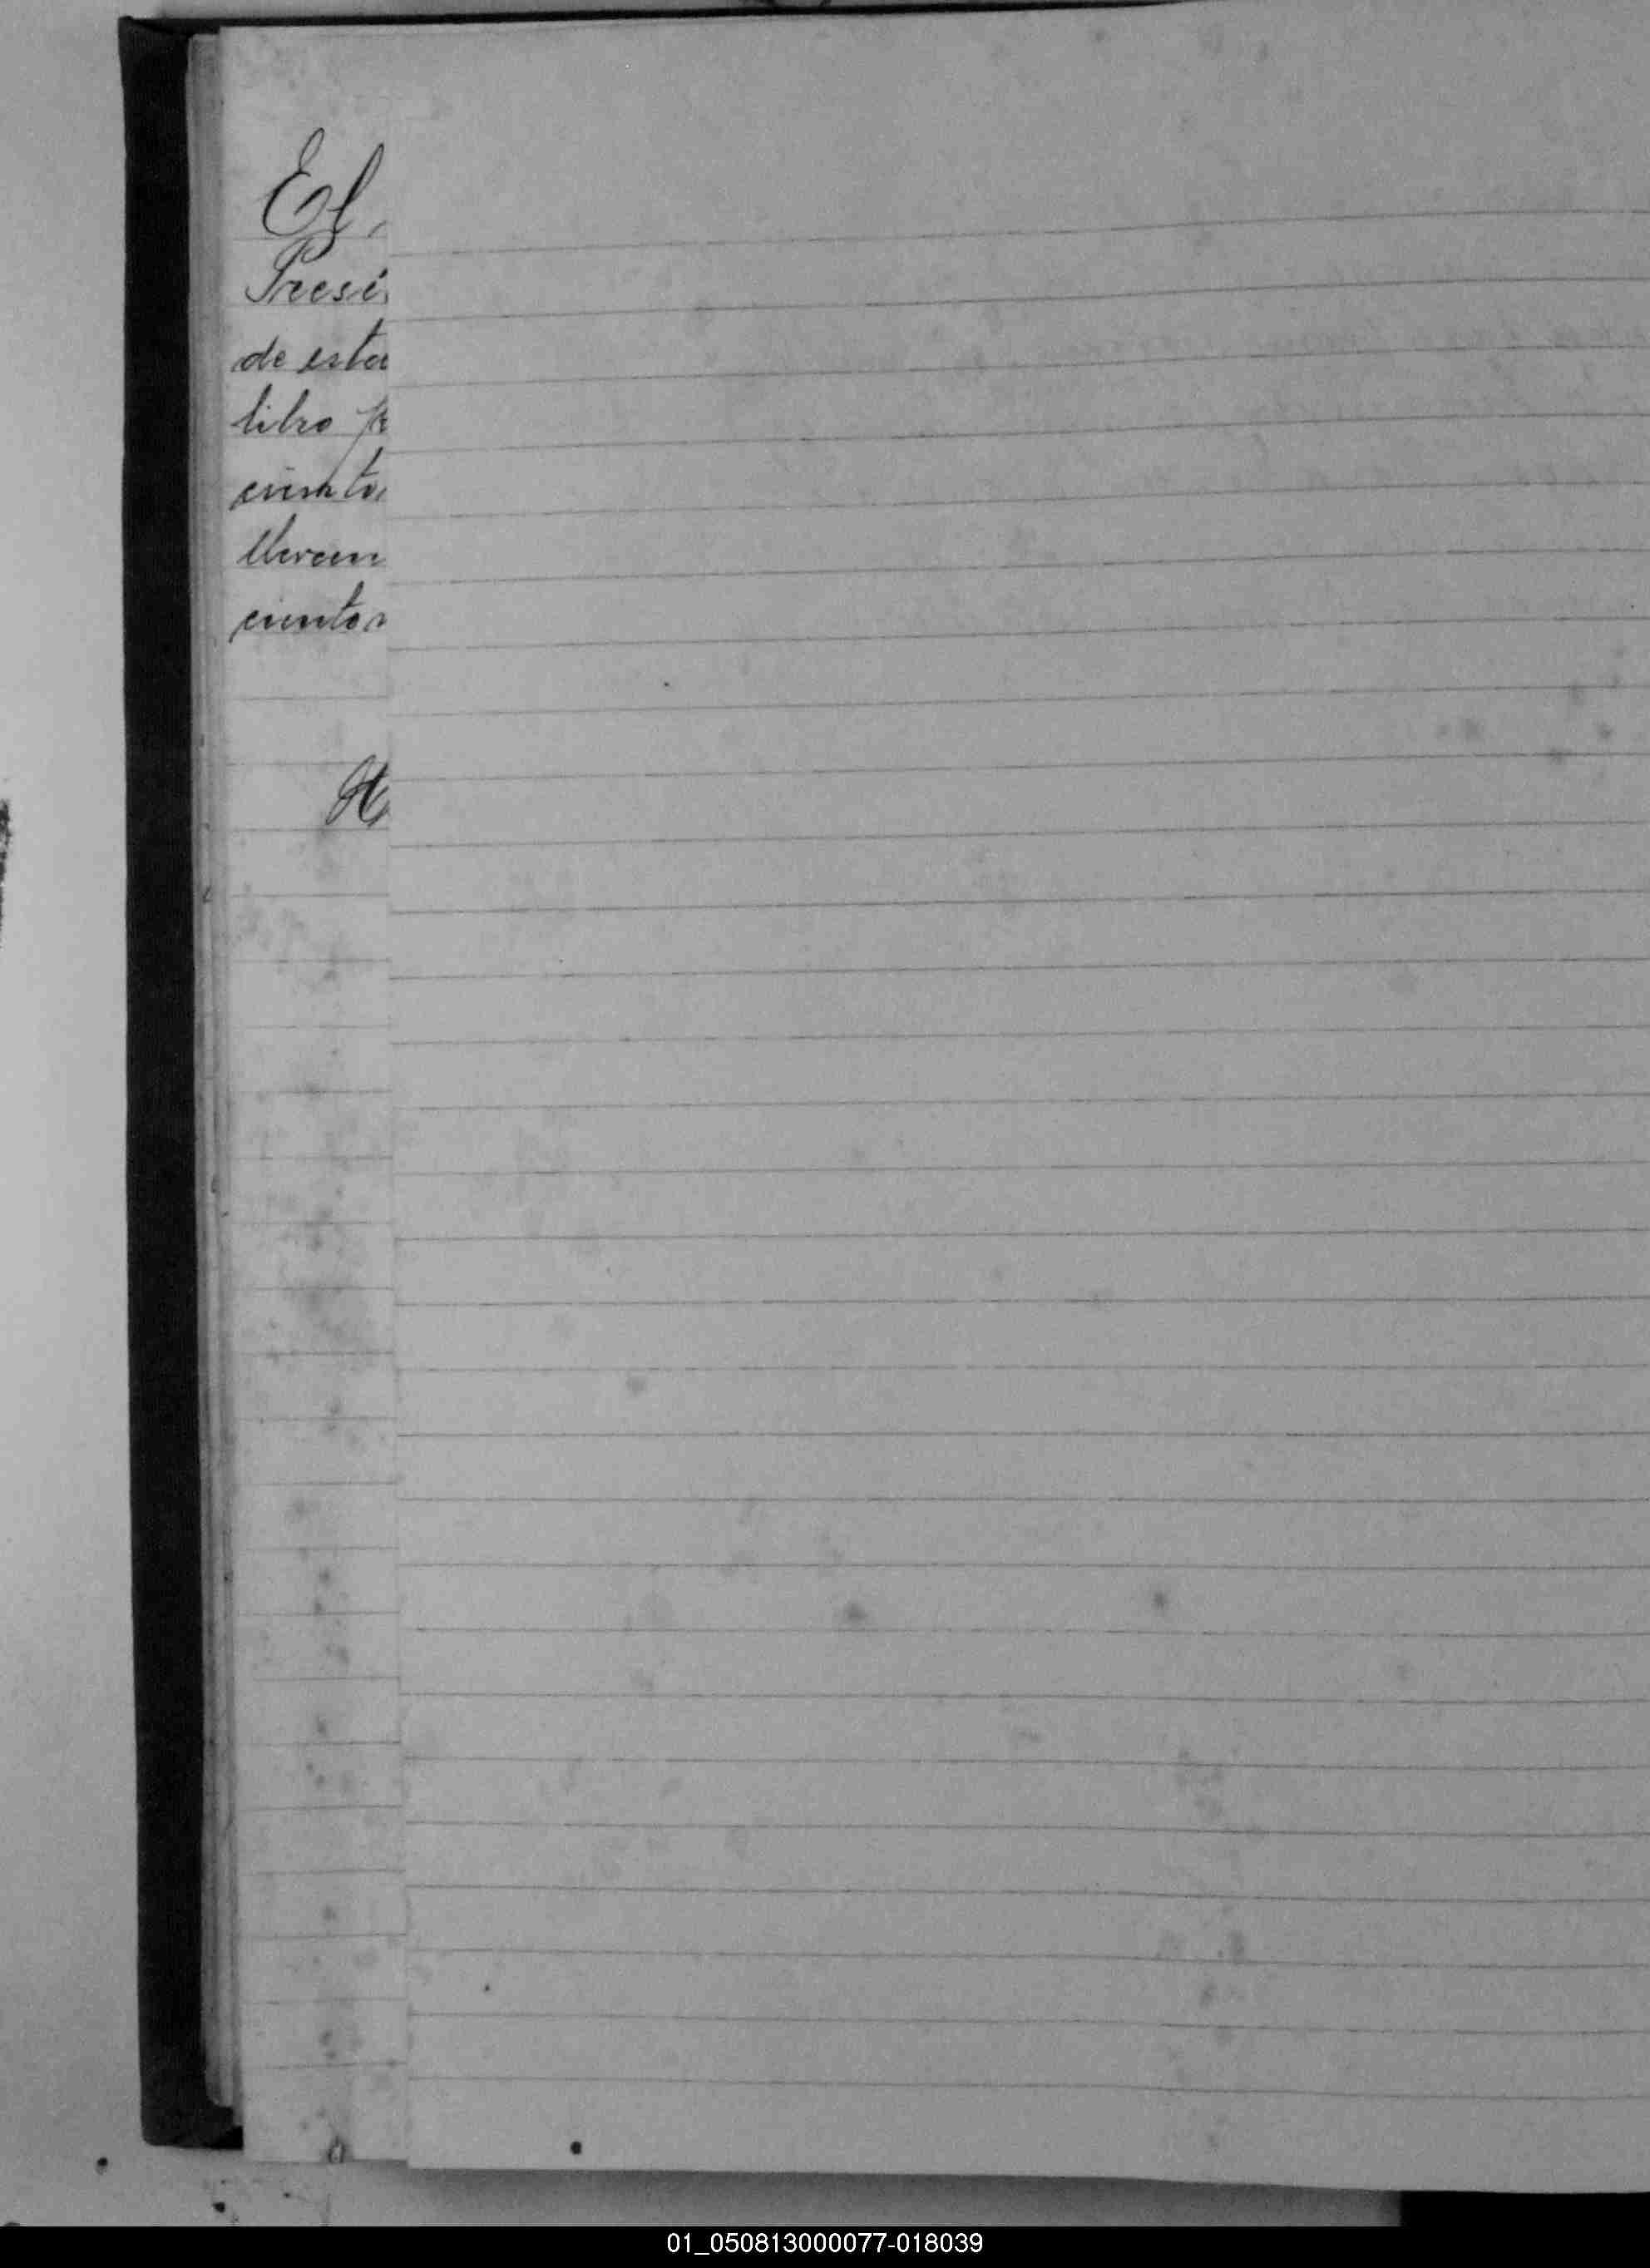 El
Presi
de esta
libro
ciento
llevem
cientos
H
01_050813000077-018039